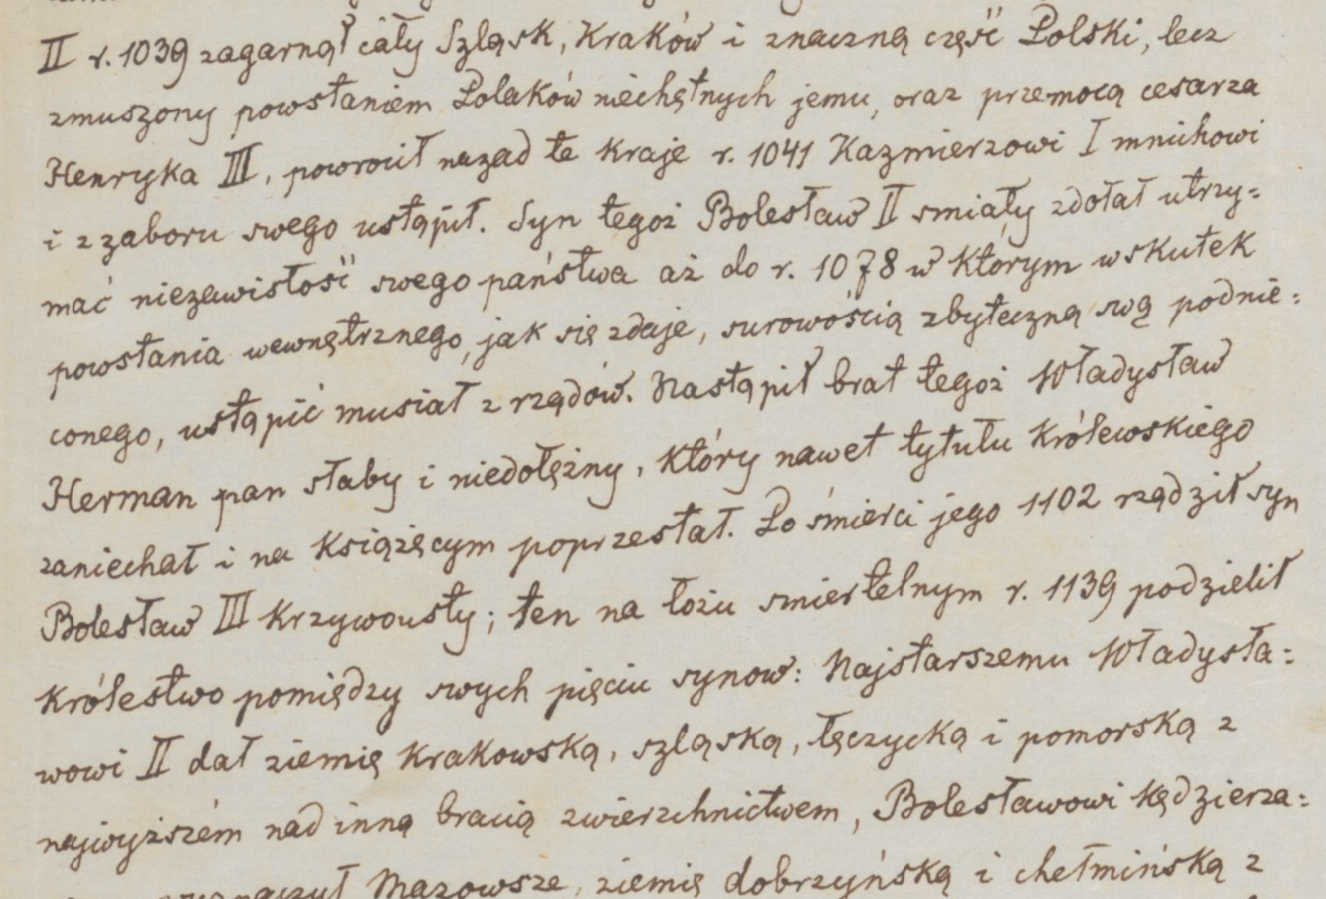 II r. 1039 zagarnął cały Szląsk, Kraków i znaczną część Polski, lecz
zmuszony powstaniem Polaków niechętnych jemu, oraz przemocą cesarza
Henryka III, powrocił nazad te kraje r. 1041 Kazmierzowi I mnichowi
i z zaboru swego ustąpił. Syn tegoż Bolesław II smiały zdołał utrzy=
mać niezawisłość swego państwa aż do r. 1078 w którym wskutek
powstania wewnętrznego, jak się zdaje, surowością zbyteczną swą podnie=
conego, ustąpić musiał z rządów. Nastąpił brat tegoż Władysław
Herman pan słaby i niedołężny, który nawet tytułu królewskiego
zaniechał i na książęcym poprzestał. Po śmierci jego 1102 rządził syn
Bolesław III Krzywousty; ten na łożu smiertelnym r. 1139 podzielił
królestwo pomiędzy swych pięciu synow: Najstarszemu Władysła=
wowi II dał ziemię krakowską, szląską, łęczycką i pomorską z
najwyższém nad inną bracią zwierzchnictwem, Bolesławowi Kędzierza=
Mazowsze, ziemię dobrzyńską i chełmińską z